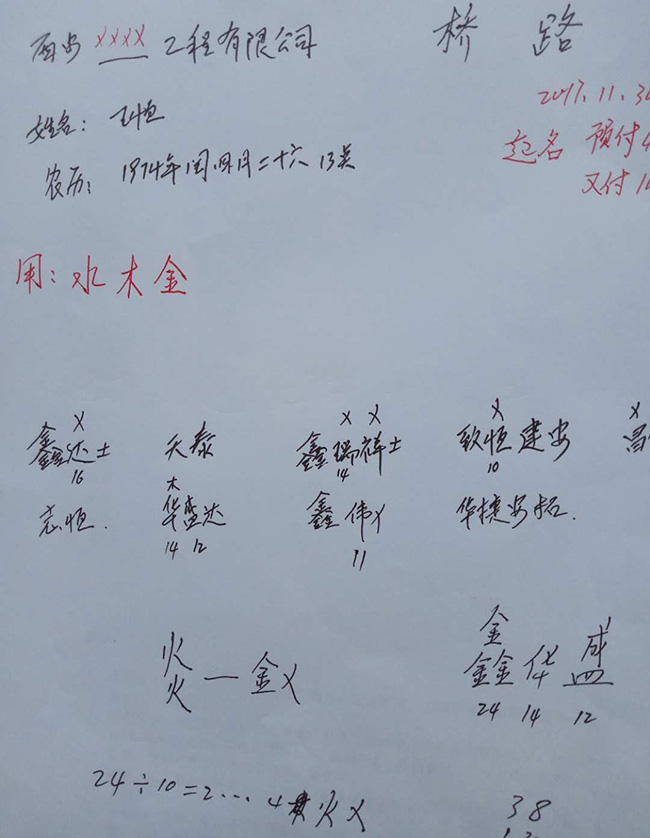 西安 XXXX 工程有限公司
桥 路
2017.11.30
姓名: 王恒
起名 预付
农历: 1974年闰四月二十六 13吴
又付
用: 水木金
X
鑫达土
16
天泰
X X
鑫瑞祥土
14
X
致恒建安
10
X
昌
志恒.
木
华盛达
14 12
鑫伟X
11
华捷安拓.
火
火 — 金X
金
鑫 华 盛
24 14 12
24÷10=2…4 火X
38